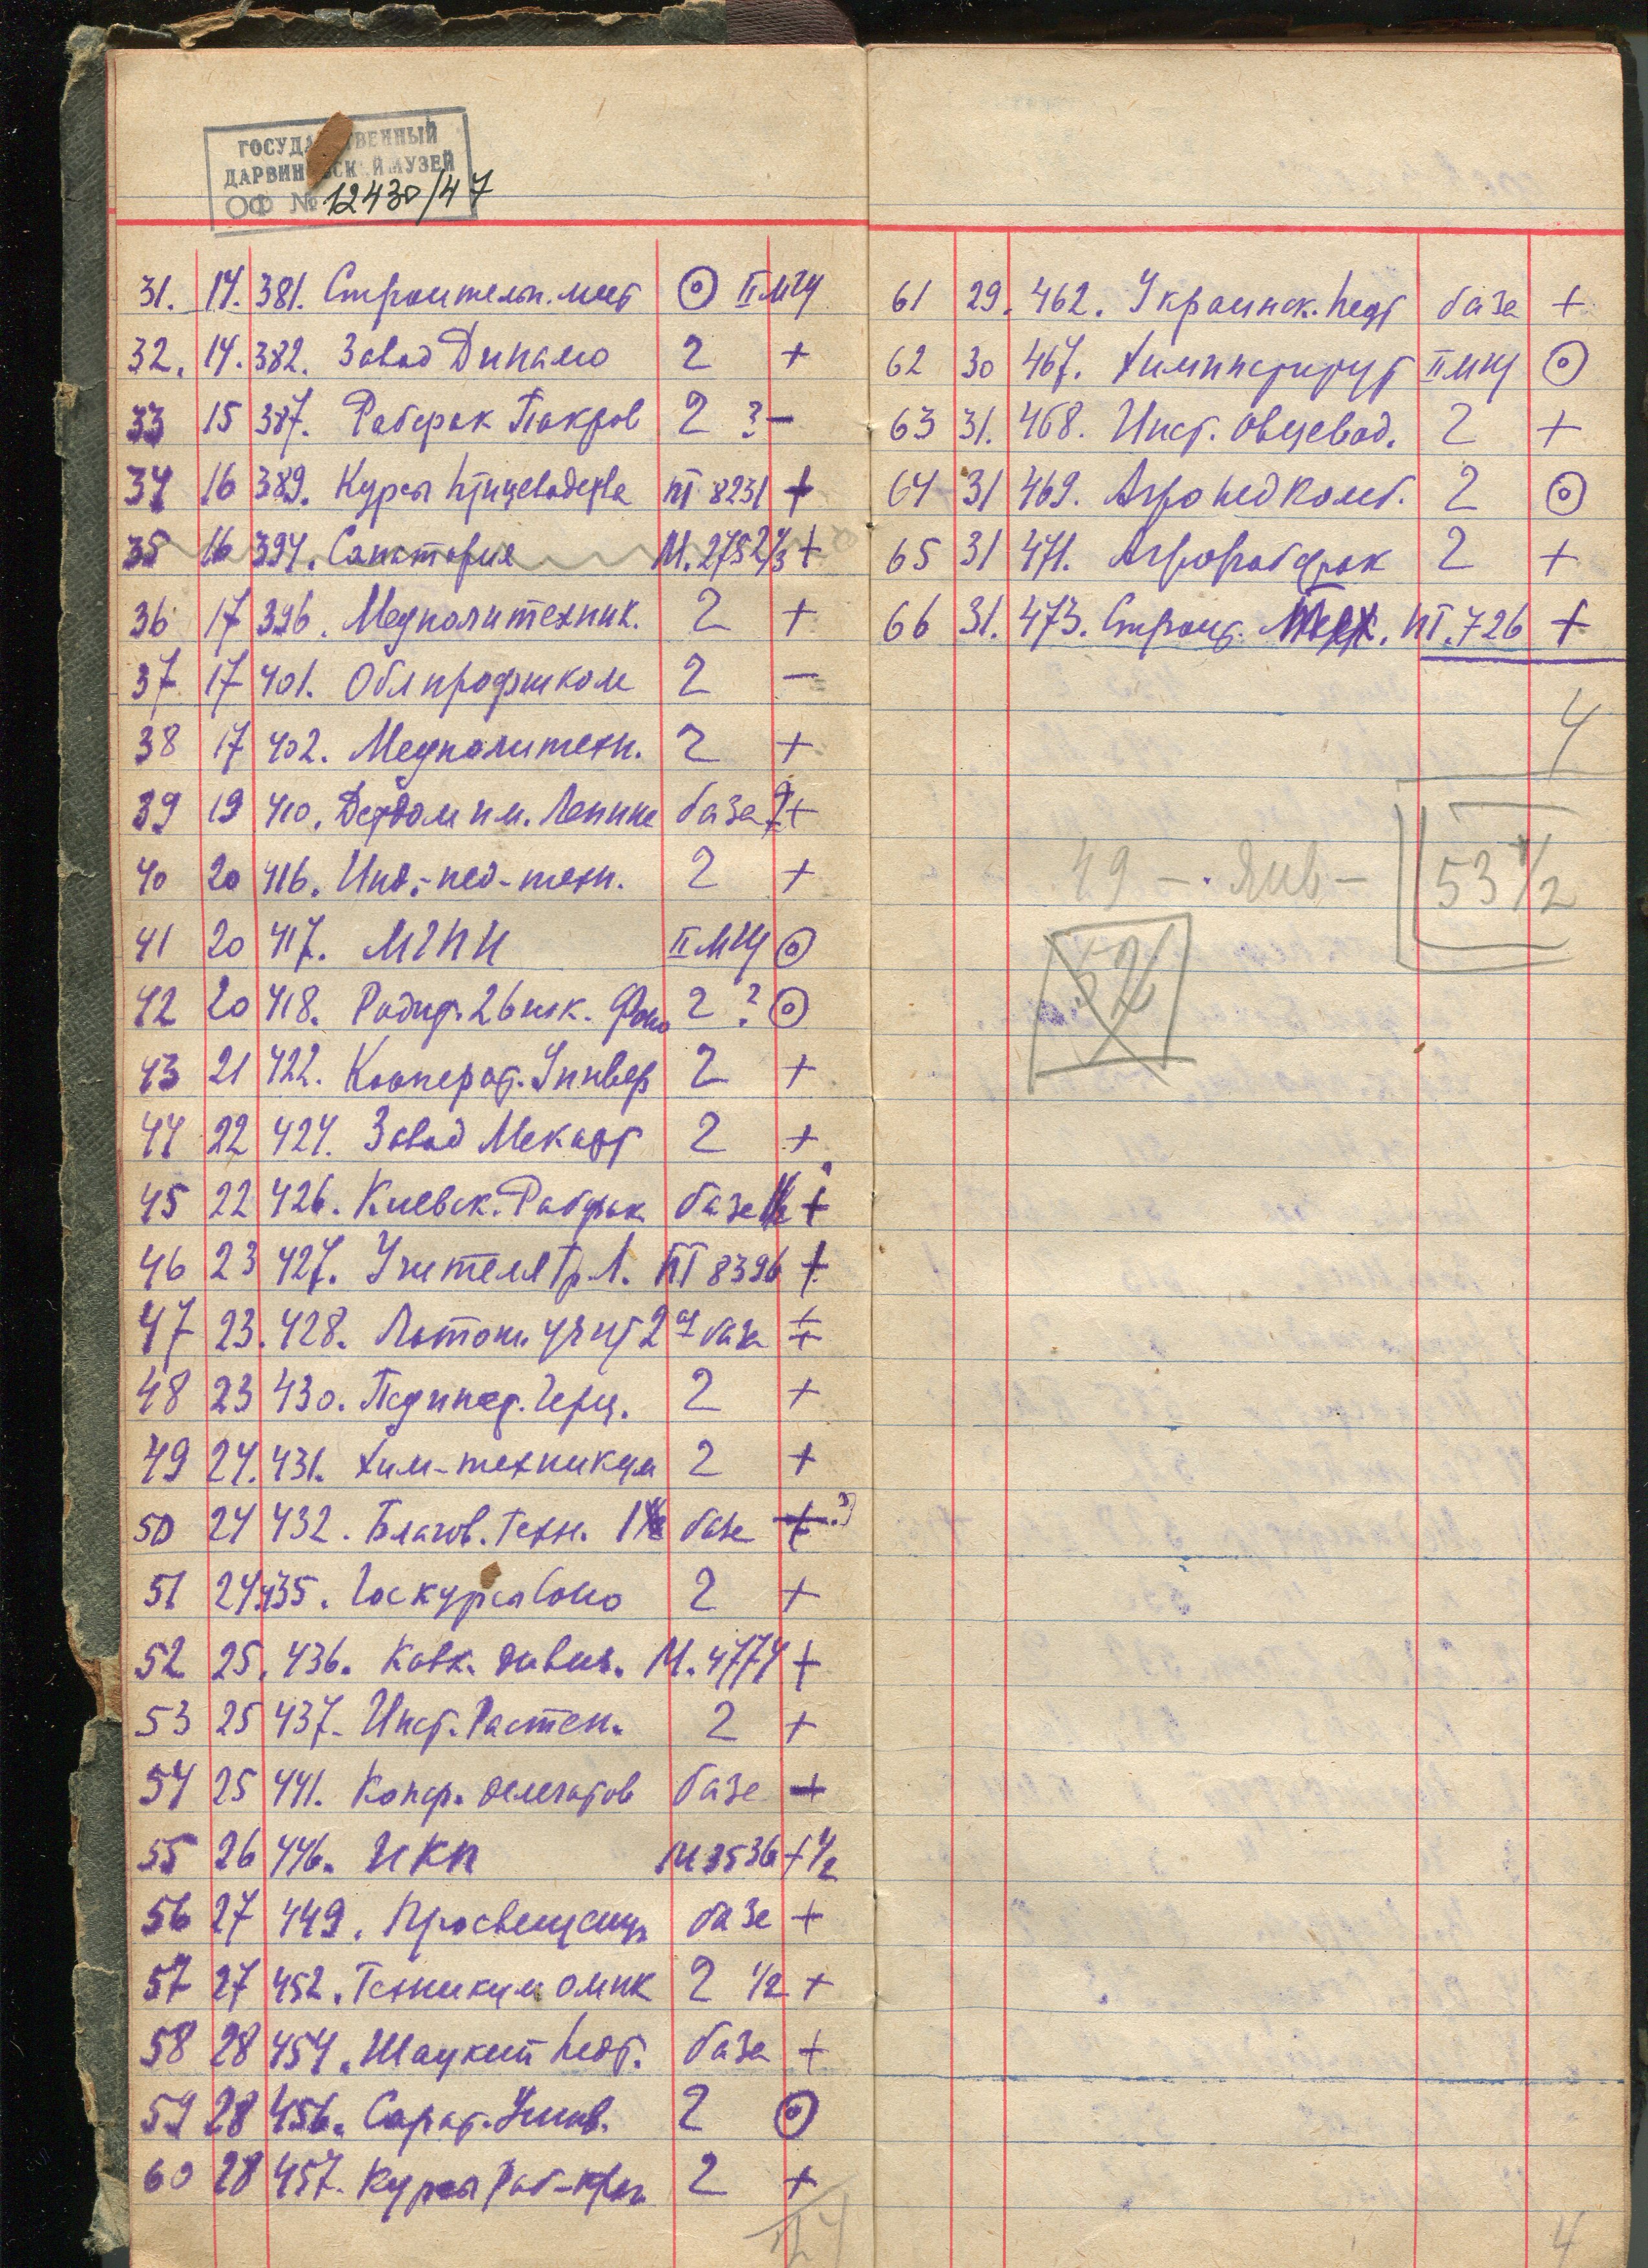 ГОСУДА СТВЕННЫЙ
ДАРВИНОВСКИЙ МУЗЕЙ
ОФ № 12430/47
31. 14. 381. Строительн. инст ⊙ II МГУ
32. 14. 382. Завод Динамо 2 +
33 15 387. Рабфак Покров 2 ? –
34 16 389. Курсы птицеводства ПТ 8231 +
35 16 394. М. 2752 1/3 +
36 17 396. Медполитехник. 2 +
37 17 401. Облпрофшкола 2 –
38 17 402. Медполитехн. 2 +
39 19 410. Детдом им. Ленина база +
40 20 416. Инд.-пед-техн. 2 +
41 20 417. МГПИ II МГУ ⊙
42 20 418. 26 шк. 2 ? ⊙
43 21 422. Кооперат. Универ 2 +
44 22 424. Завод 2 +
45 22 426. Киевск. Рабфак база +
46 23 427. Учителя ПТ 8396 +
47 23. 428. 2 база +
48 23 430. Герц. 2 +
49 24. 431. Хим-техникум 2 +
50 24 432. Благов. Техн. база +
51 24 435. Госкурсы 2 +
52 25. 436. Кавк. дивиз. М. 4774 +
53 25 437. Инст. Растен. 2 +
54 25 441. Конфр. делегатов база +
55 26 446. ИКП М 3536 + 1/2
56 27 449. Просвещенц база +
57 27 452. Техникум 2 1/2 +
58 28 454. педт. база +
59 28 456. Сарат. Унив. 2 ⊙
60 28 457. Курсы Раб- 2 +
61 29. 462. Украинск. педт база +
62 30 467. Химинститут II МГУ ⊙
63 31. 468. Инст. овцевод. 2 +
64 31 469. Агропедкомб. 2 ⊙
65 31 471. Агрорабфак 2 +
66 31. 473. Строит. ПТ. 726 +
4
49 – Янв – 53 1/2
52
4